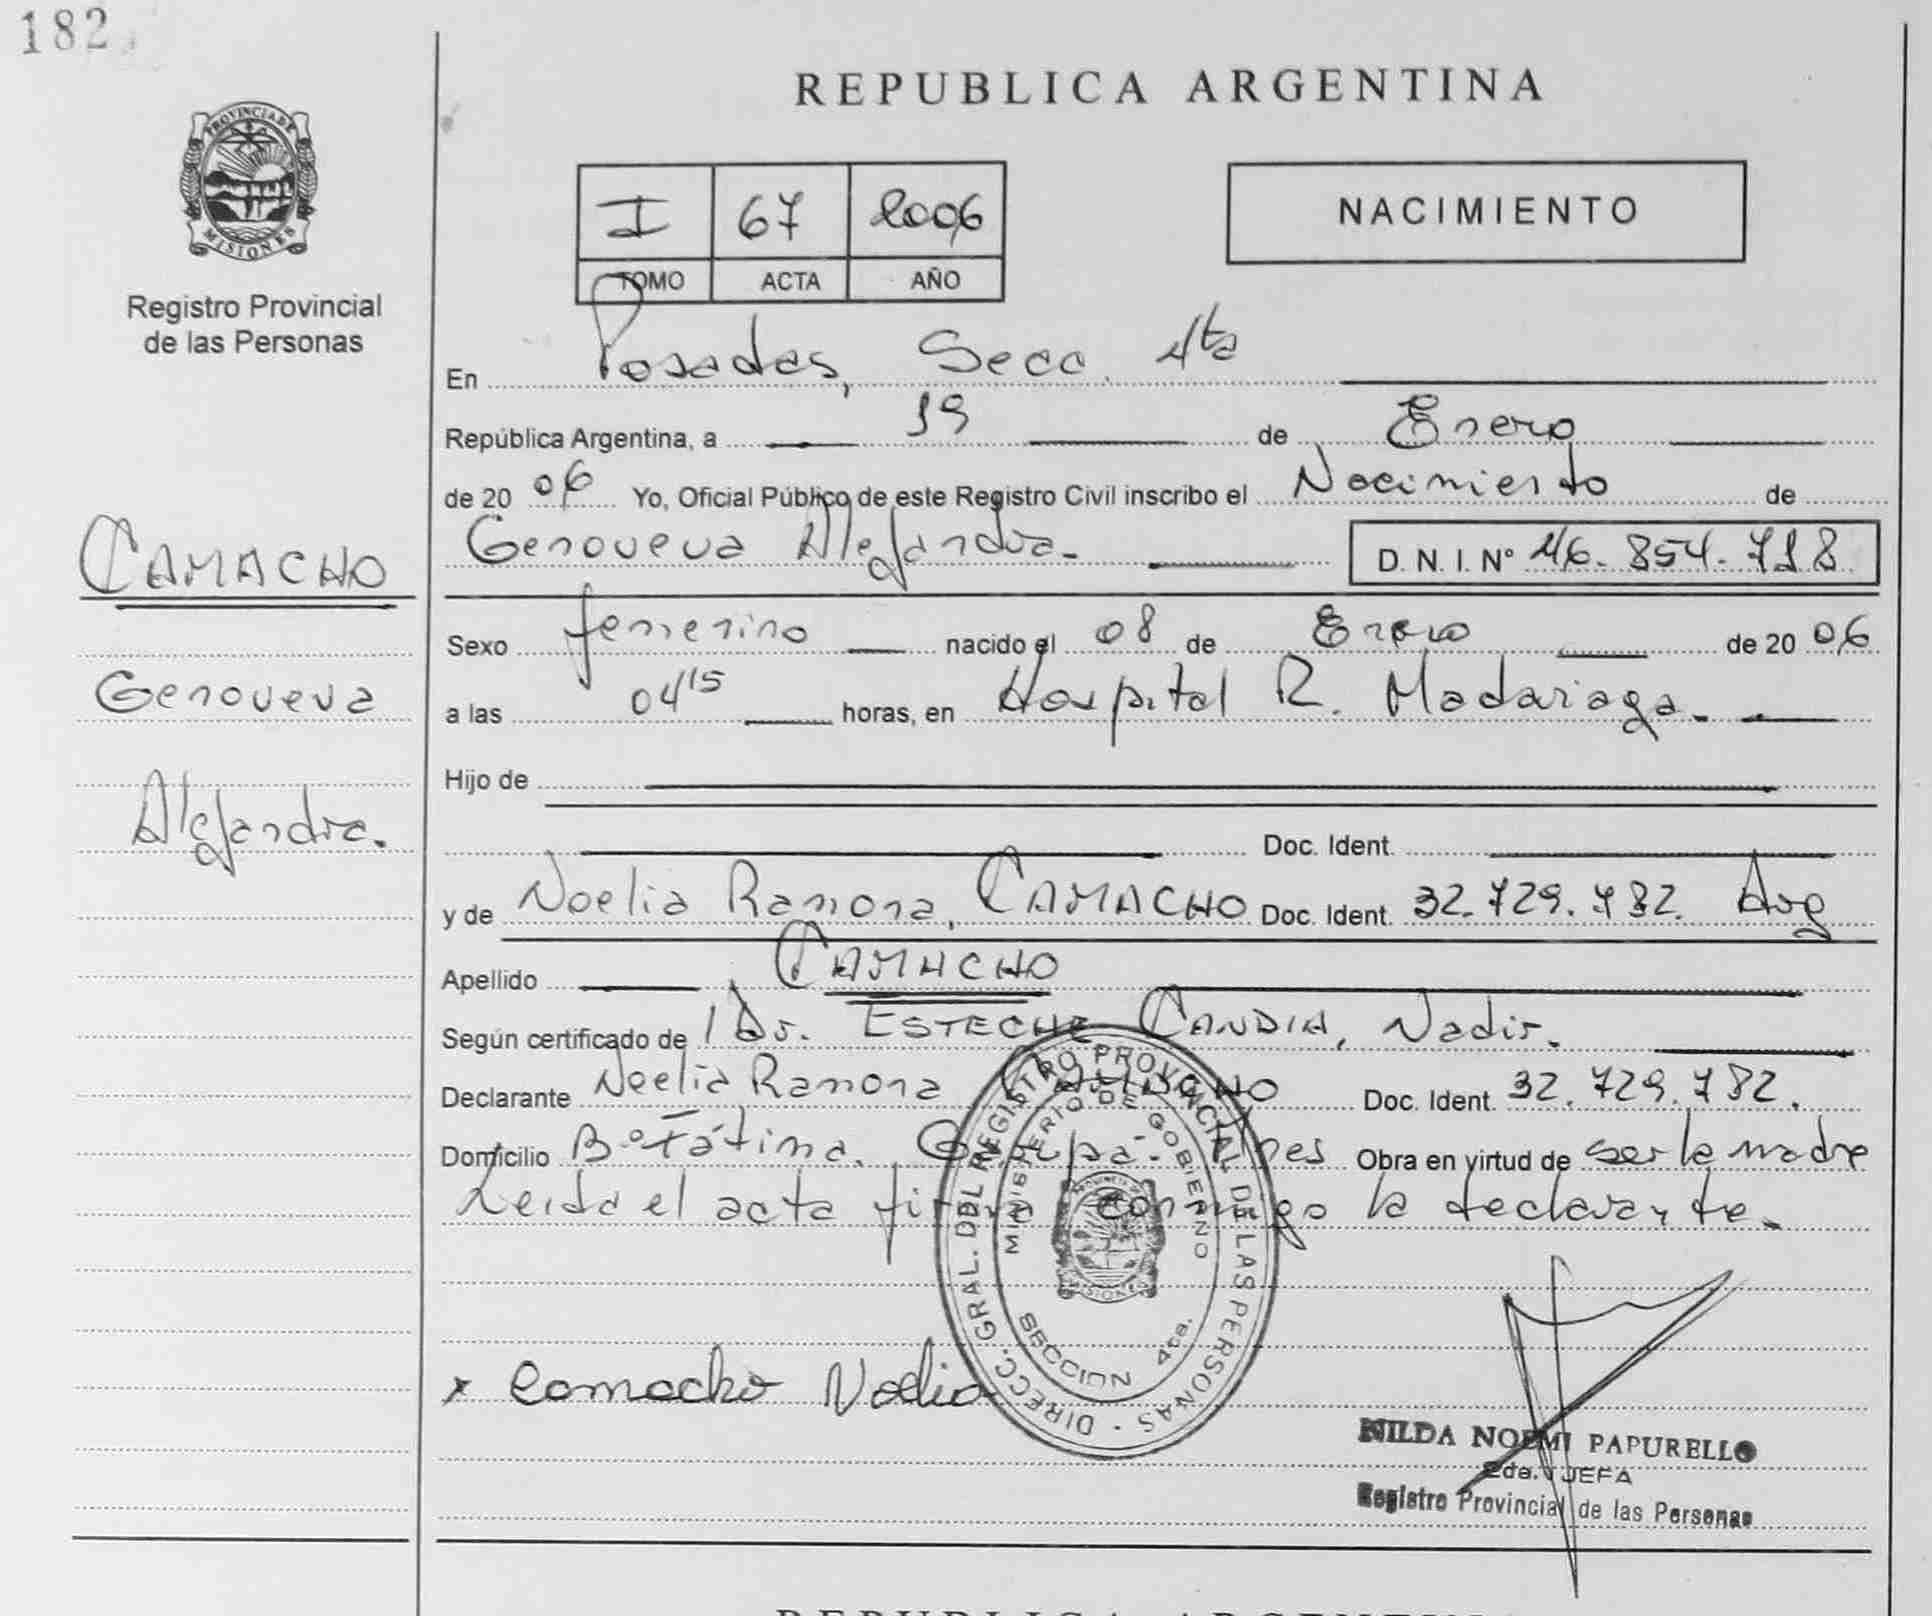 182
REPUBLICA ARGENTINA
PROVINCIA DE
MISIONES
Registro Provincial
de las Personas
I 67 2006
TOMO ACTA AÑO
NACIMIENTO
En Posadas, Secc. 4ta
República Argentina, a 19 de Enero
de 20 06 Yo, Oficial Público de este Registro Civil inscribo el Nacimiento de
Genoveva Alejandra.- D. N. I. Nº 46.854.718
CAMACHO
Genoveva
Alejandra.
Sexo femenino nacido el 08 de Enero de 20 06
a las 04 15 horas, en Hospital R. Madariaga.-
Hijo de
Doc. Ident.
y de Noelia Ramona, CAMACHO Doc. Ident. 32.729.782. Arg
Apellido CAMACHO
Según certificado de Dr. ESTECHE CANDIA, Nadir.
Declarante Noelia Ramona CAMACHO Doc. Ident. 32.729.782.
Domicilio Bº Fátima. Garupá. Mnes Obra en virtud de ser la madre
Leida el acta firma conmigo la declarante.
DIRECC. GRAL. DEL REGISTRO PROVINCIAL DE LAS PERSONAS
MINISTERIO DE GOBIERNO
MISIONES
SECCION 4ta.
x Camacho Noelia
NILDA NOEMI PAPURELLO
2da. JEFA
Registro Provincial de las Personas
REPUBLICA ARGENTINA